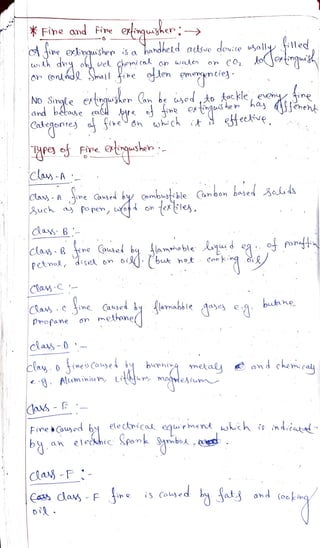 * Fine and Fire extinguisher :→
A fire extinguisher is a handheld active device usally filled
with dry or wet chemical on water on CO2 to extinguish
or control small fire often emergencies.
No Single extinguisher Can be used to tackle every fire
and because each type of fire extinguisher has different
Categories of fire on which it is effective.
Types of Fire extinguisher :-
Class-A :-
Class-A fire Caused by combustible Carbon based Solids
Such as Paper, wood or textiles.
Class-B :-
Class-B fire Caused by flammable liquid eg. of paraffin
petrol, diesel or oil. (but not cooking oil)
Class-C :-
Class-C fire Caused by flamabble gases e.g. butane
Propane or methane
class-D :-
Class-D fires caused by burning metals and chemicals
e.g. Aluminium Lithium magnesium
Class-E :-
Fire Caused by electrical equirment which is indicated
by an electric Spark Symbol.
CLass-F :-
Class-F fire is caused by fats and cooking
oil.